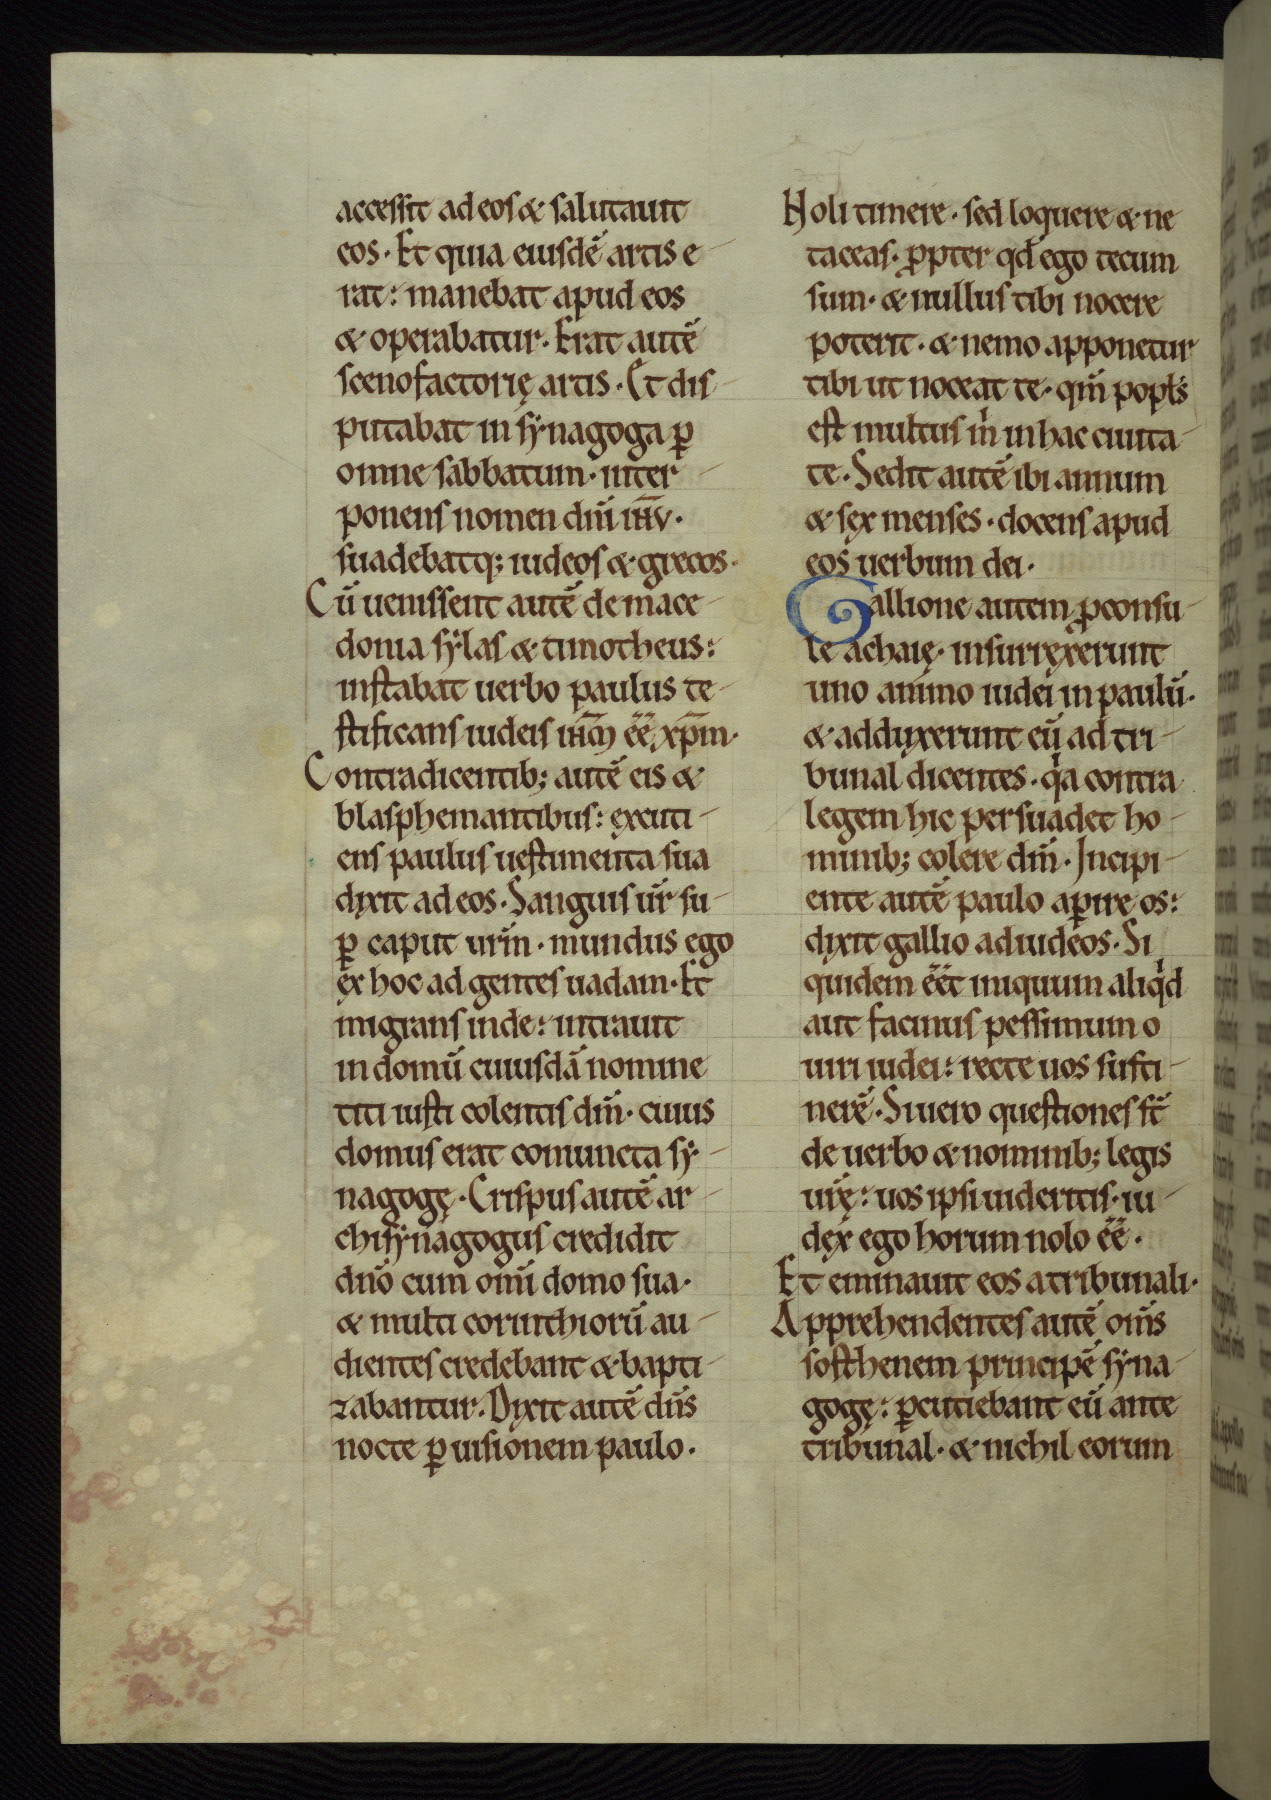 accessit ad eos & salutauit
eos. Et quia eiusdē artis e-
rat: manebat apud eos
& operabatur. Erat autē
scenofactorię artis. Et dis-
putabat in synagoga ꝑ
omne sabbatum. inter-
ponens nomen dn̄i ih̄v.
suadebatq; iudeos & grecos.
Cū uenissent autē de mace-
donia sylas & timotheus:
instabat uerbo paulus te-
stificans iudeis ih̄m ēē xp̄m.
Contradicentib; autē eis &
blasphemantibus: excuti-
ens paulus uestimenta sua
dixit ad eos. Sanguis ur̄ su-
ꝑ caput urm̄. mundus ego
ex hoc ad gentes uadam. Et
migrans inde: intrauit
in domū cuiusdā nomine
titi iusti colentis dm̄. cuius
domus erat coniuncta sy-
nagogę. Crispus autē ar-
chisynagogus credidit
dn̄o cum omī domo sua.
& multi corinthiorū au-
dientes credebant & bapti-
zabantur. Dixit autē dn̄s
nocte ꝑ uisionem paulo.
Noli timere. sed loquere & ne
taceas. ꝓpter qd̄ ego tecum
sum. & nullus tibi nocere
poterit. & nemo apponetur
tibi ut noceat te. qm̄ popl̄s
est multus m̄ in hac ciuita-
te. Sedit autē ibi annum
& sex menses. docens apud
eos uerbum dei.
Gallione autem ꝓconsu-
le achaię. insurrexerunt
uno animo iudei in paulū.
& adduxerunt eū ad tri-
bunal dicentes. qa contra
legem hic persuadet ho-
minib; colere dm̄. Incipi-
ente autē paulo aꝑire os:
dixit gallio ad iudeos. Si
quidem ēēt iniquum aliqd
aut facinus pessimum o
uiri iudei: recte uos susti-
nerē. Si uero questiones st̄
de uerbo & nominib; legis
ur̄ę: uos ipsi uideritis. iu-
dex ego horum nolo ēē.
Et eminauit eos a tribunali.
Apprehendentes autē om̄s
sosthenem principē syna-
gogę: ꝑcutiebant eū ante
tribunal. & nichil eorum